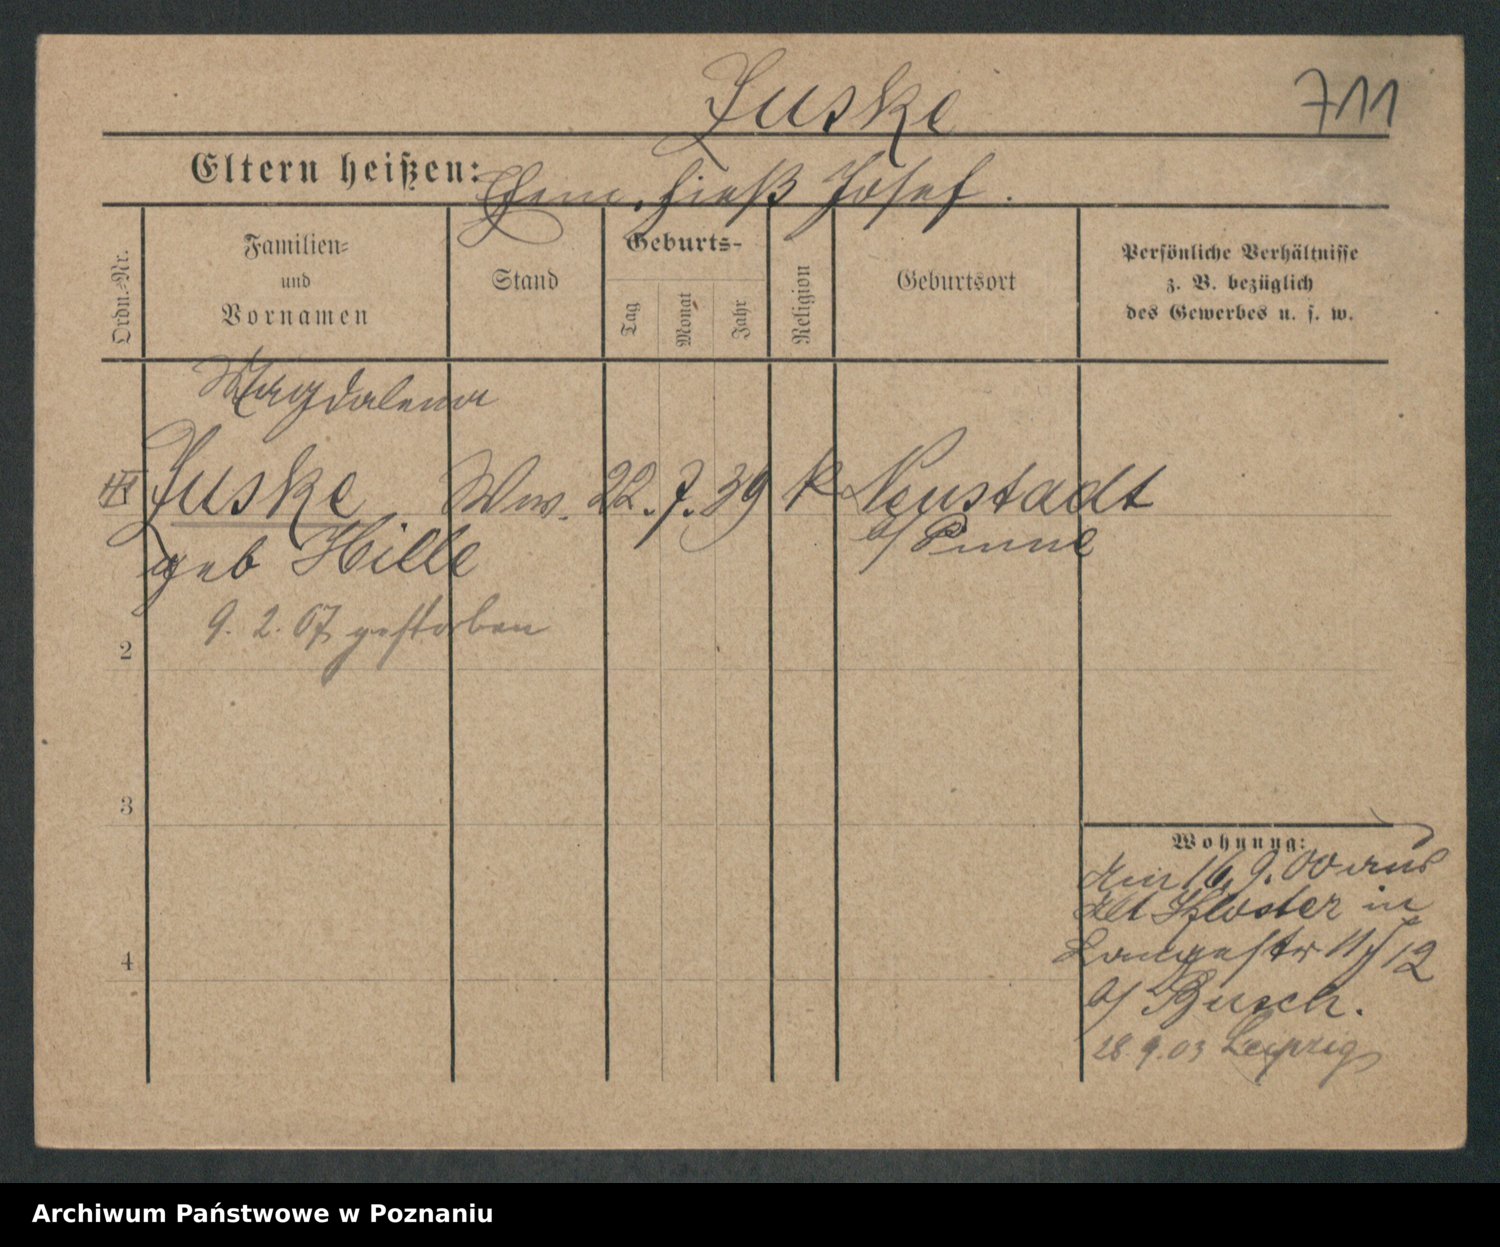 Juske 711
Eltern heißen: Ehem. hieß Josef.
Ordn.-Nr.
Familien-
und
Vornamen
Stand
Geburts-
Tag
Monat
Jahr
Religion
Geburtsort
Persönliche Verhältnisse
z. B. bezüglich
des Gewerbes u. s. w.
Magdalena
Juske Ww. 22. 7. 39 k Neustadt
geb Hille b/ Pinne
9. 2. 07 gestorben
2
3
Wohnung:
Am 16. 9. 00 aus
Alt Kloster in
Langestr 11/12
4
b/ Busch.
28. 9. 03 Leipzig
Archiwum Państwowe w Poznaniu